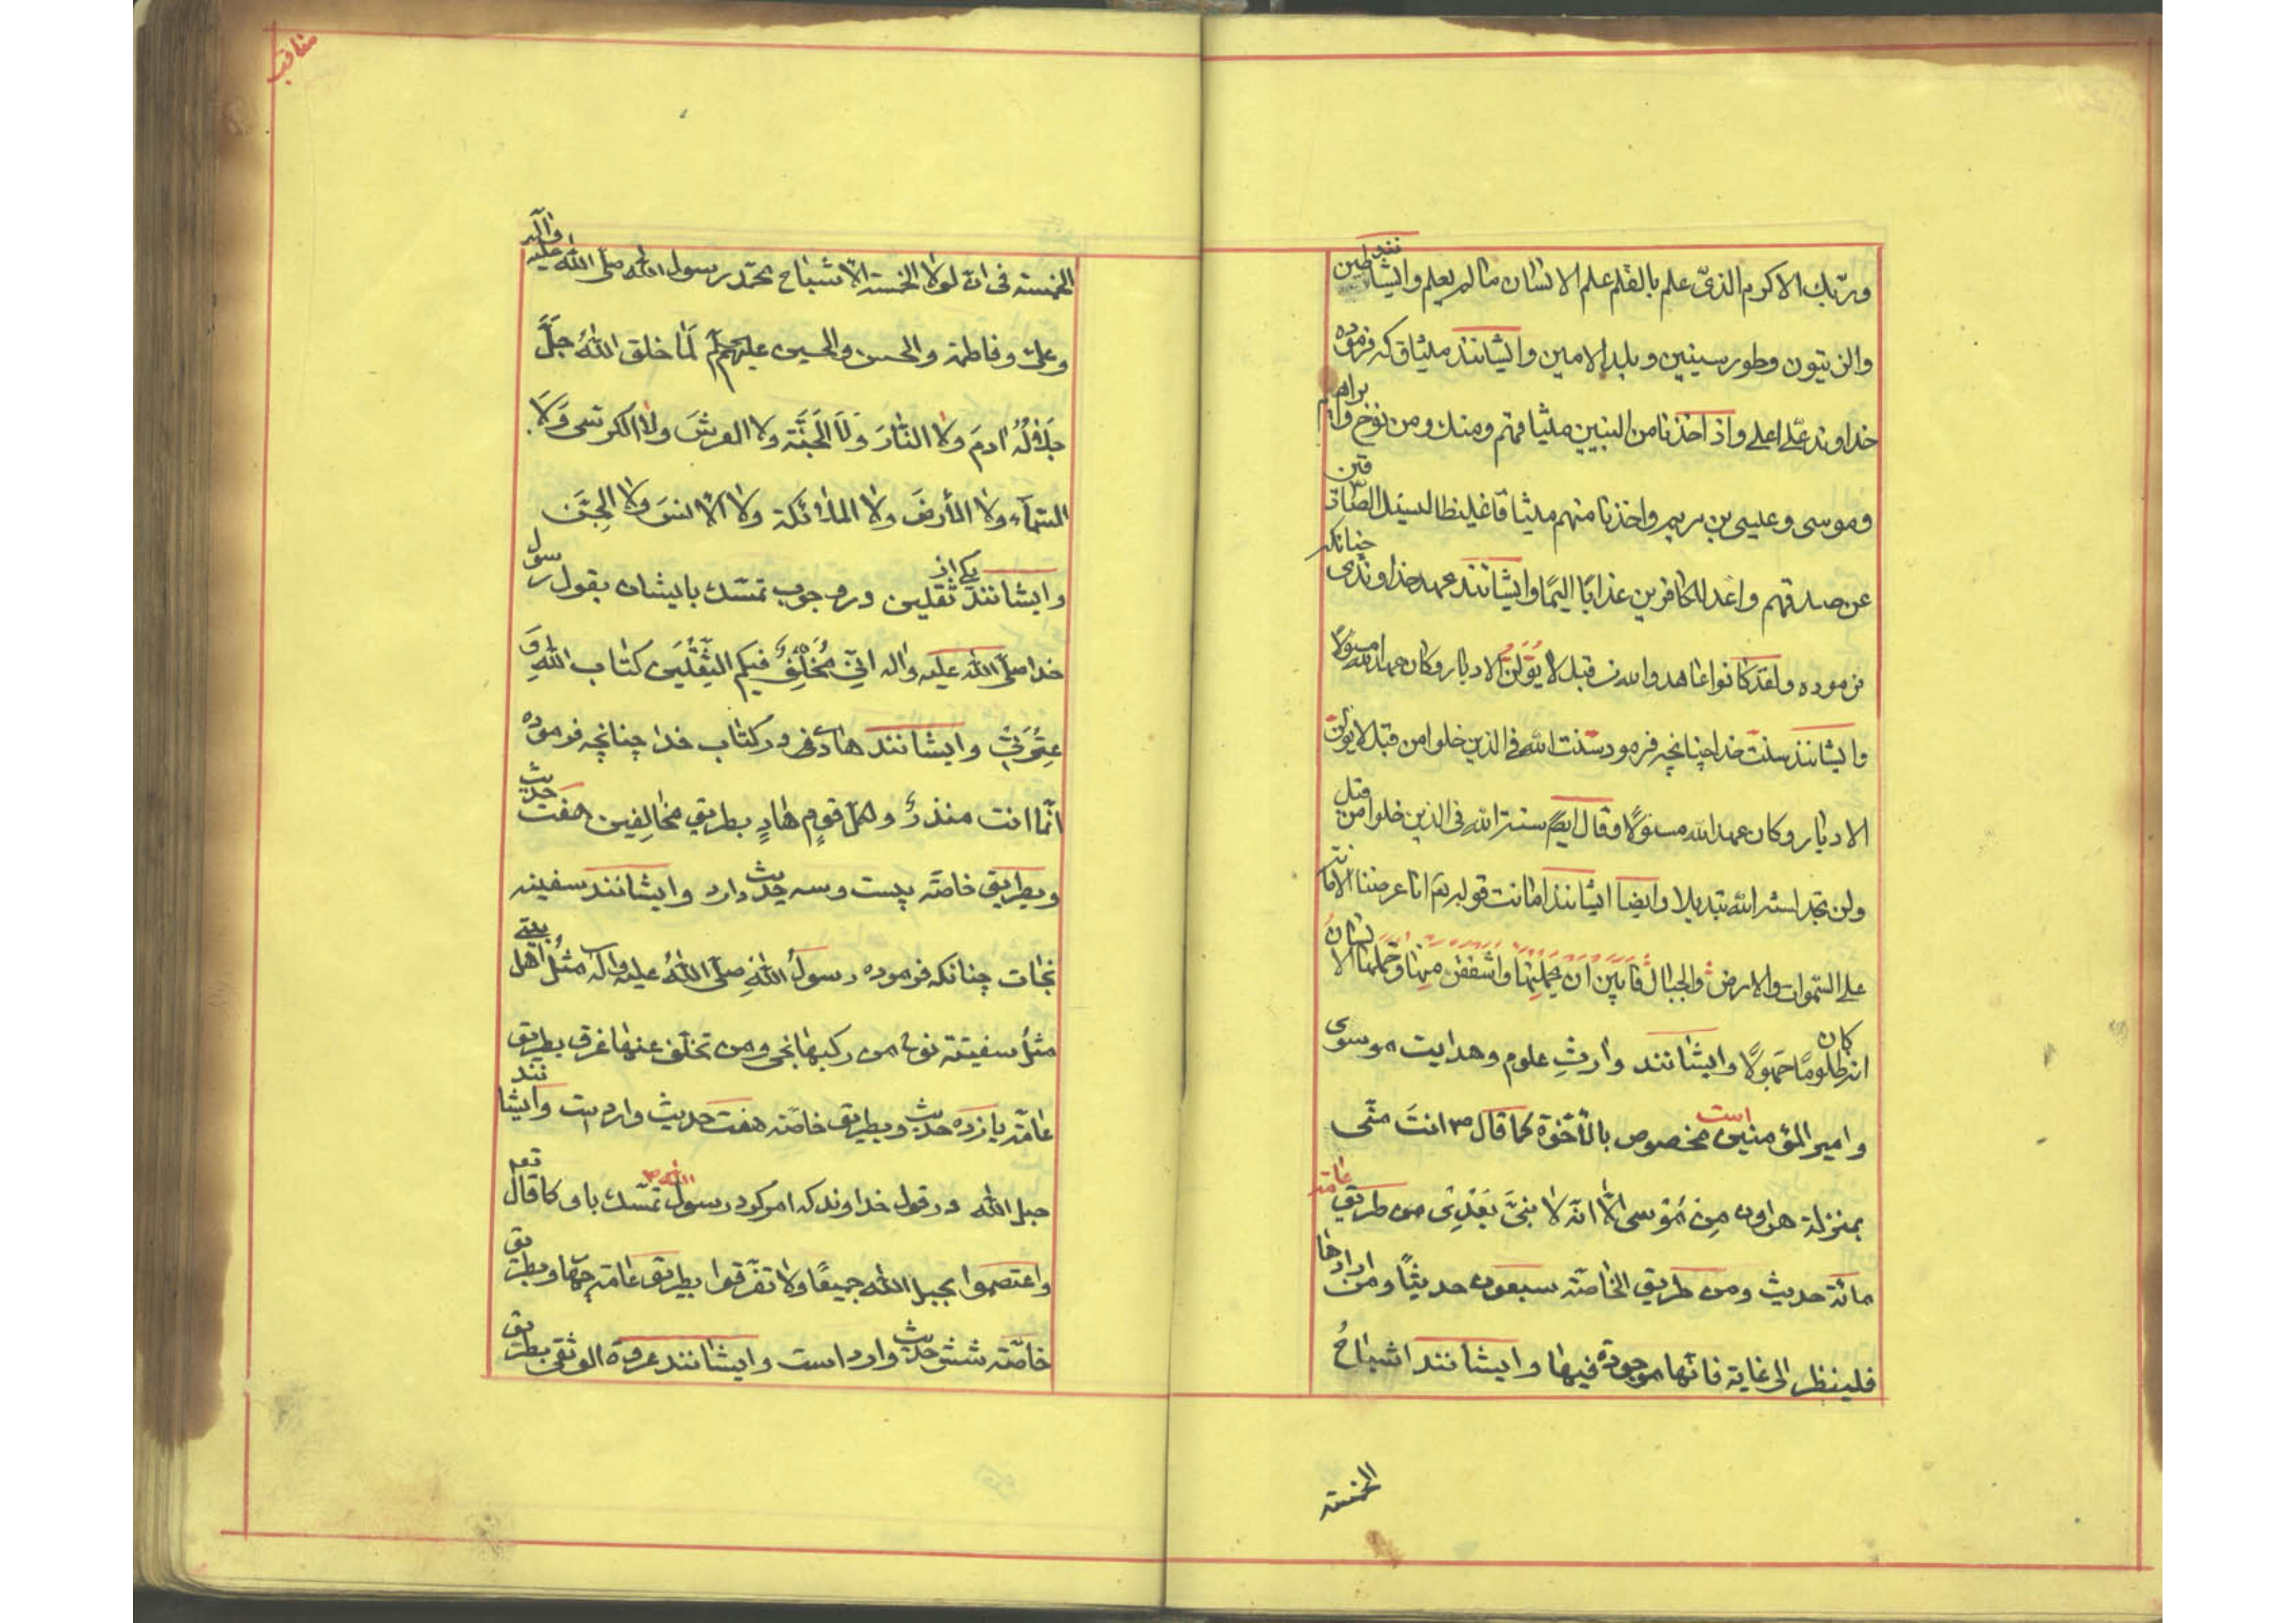 وربّك الاكرم الذی علم بالقلم علم الانسان ما لم یعلم وایشانند طین
والزیتون وطور سینین و بلد الامین وایشانند میثاق که فرموده
خداوند علّی اعلی واذ اخذنا من النبیین میثاقهم ومنك ومن نوح وابراهیم
وموسی وعیسی بن مریم واخذنا منهم میثاقا غلیظا لیسئل الصّادقین
عن صدقهم واعد للکافرین عذابًا الیمًا وایشانند عهد خداوندی چنانکه
فرموده ولقد کانوا عاهدوا الله من قبل لا یُوَلّونَ الادبار وکان عهد الله مسئولا
وایشانند سنت خدا چنانچه فرمود سنّت الله فی الذین خلوا من قبل لا یولون
الادبار وکان عهد الله مسئولًا وقال ایضً سنة الله فی الذین خلوا من قبل
ولن تجد لسنة الله تبدیلا وایضا ایشانند امانت قوله تع انا عرضنا الامانة
علی السّموات والارض والجبال فابین ان یحملنها واشفقن منها وحملها الانسان
انه کان ظلومًا جهولًا وایشانند وارثِ علوم وهدایت موسی
وامیر المؤمنین است مخصوص بالأخوة کما قال ص انتَ منّی
بمنزلة هرون مِن مُوسی الّا انّه لا نبیَّ بَعْدِی من طریق عامّه
مائة حدیث ومن طریق الخاصّه سبعون حدیثًا ومن ارادها
فلینظر الی غایة فانّها موجودة فیها وایشانند اشباحُ
الخمسة
مناقب
الخمسة فی انّ لولا الخمسة الاشباح محمّد رسول الله صلّی الله علیه وآله
وعلی وفاطمة والحسن والحسین علیهم لَما خلق اللهُ جَلَّ
جَلالُهُ ادمَ ولا النّارَ وَلَا الجَنَّة ولا العرشَ ولا الکرسی وَلا
السّمآء ولا الأرضَ ولا الملائکة ولا الانسَ ولا الجِنَّ
وایشانند یکی از ثقلین در وجوب تمسّك بایشان بقول رسول
خدا صلّی الله علیه واله انّی مُخَلِّفٌ فیکم الثِقْلَین کتاب اللهِ وَ
عِتْرَتی وایشانند هادی در کتاب خدا چنانچه فرموده
انّما انت منذرٌ ولکلّ قومٍ هادٍ بطریق مخالِفین هفت حدیث
وبطریق خاصّه بیست وسه حدیث دارد وایشانند سفینه
نجات چنانکه فرموده رسولُ اللهِ صلّی اللهُ علیه واله مثلُ اهل بیتی
مثلُ سفینة نوح من رکبها نجی ومن تخلّف عنها غرق بطریق
عامّه یازده حدیث وبطریق خاصّه هفت حدیث وارد است وایشانند
حبل الله در قول خداوند که امر کرد رسول الله ص تمسّك باو کما قال تعم
واعتصموا بحبل الله جمیعًا ولا تفرّقوا بطریق عامّه چهار وبطریق
خاصّه شش حدیث وارد است وایشانند عروة الوثقی بطریق